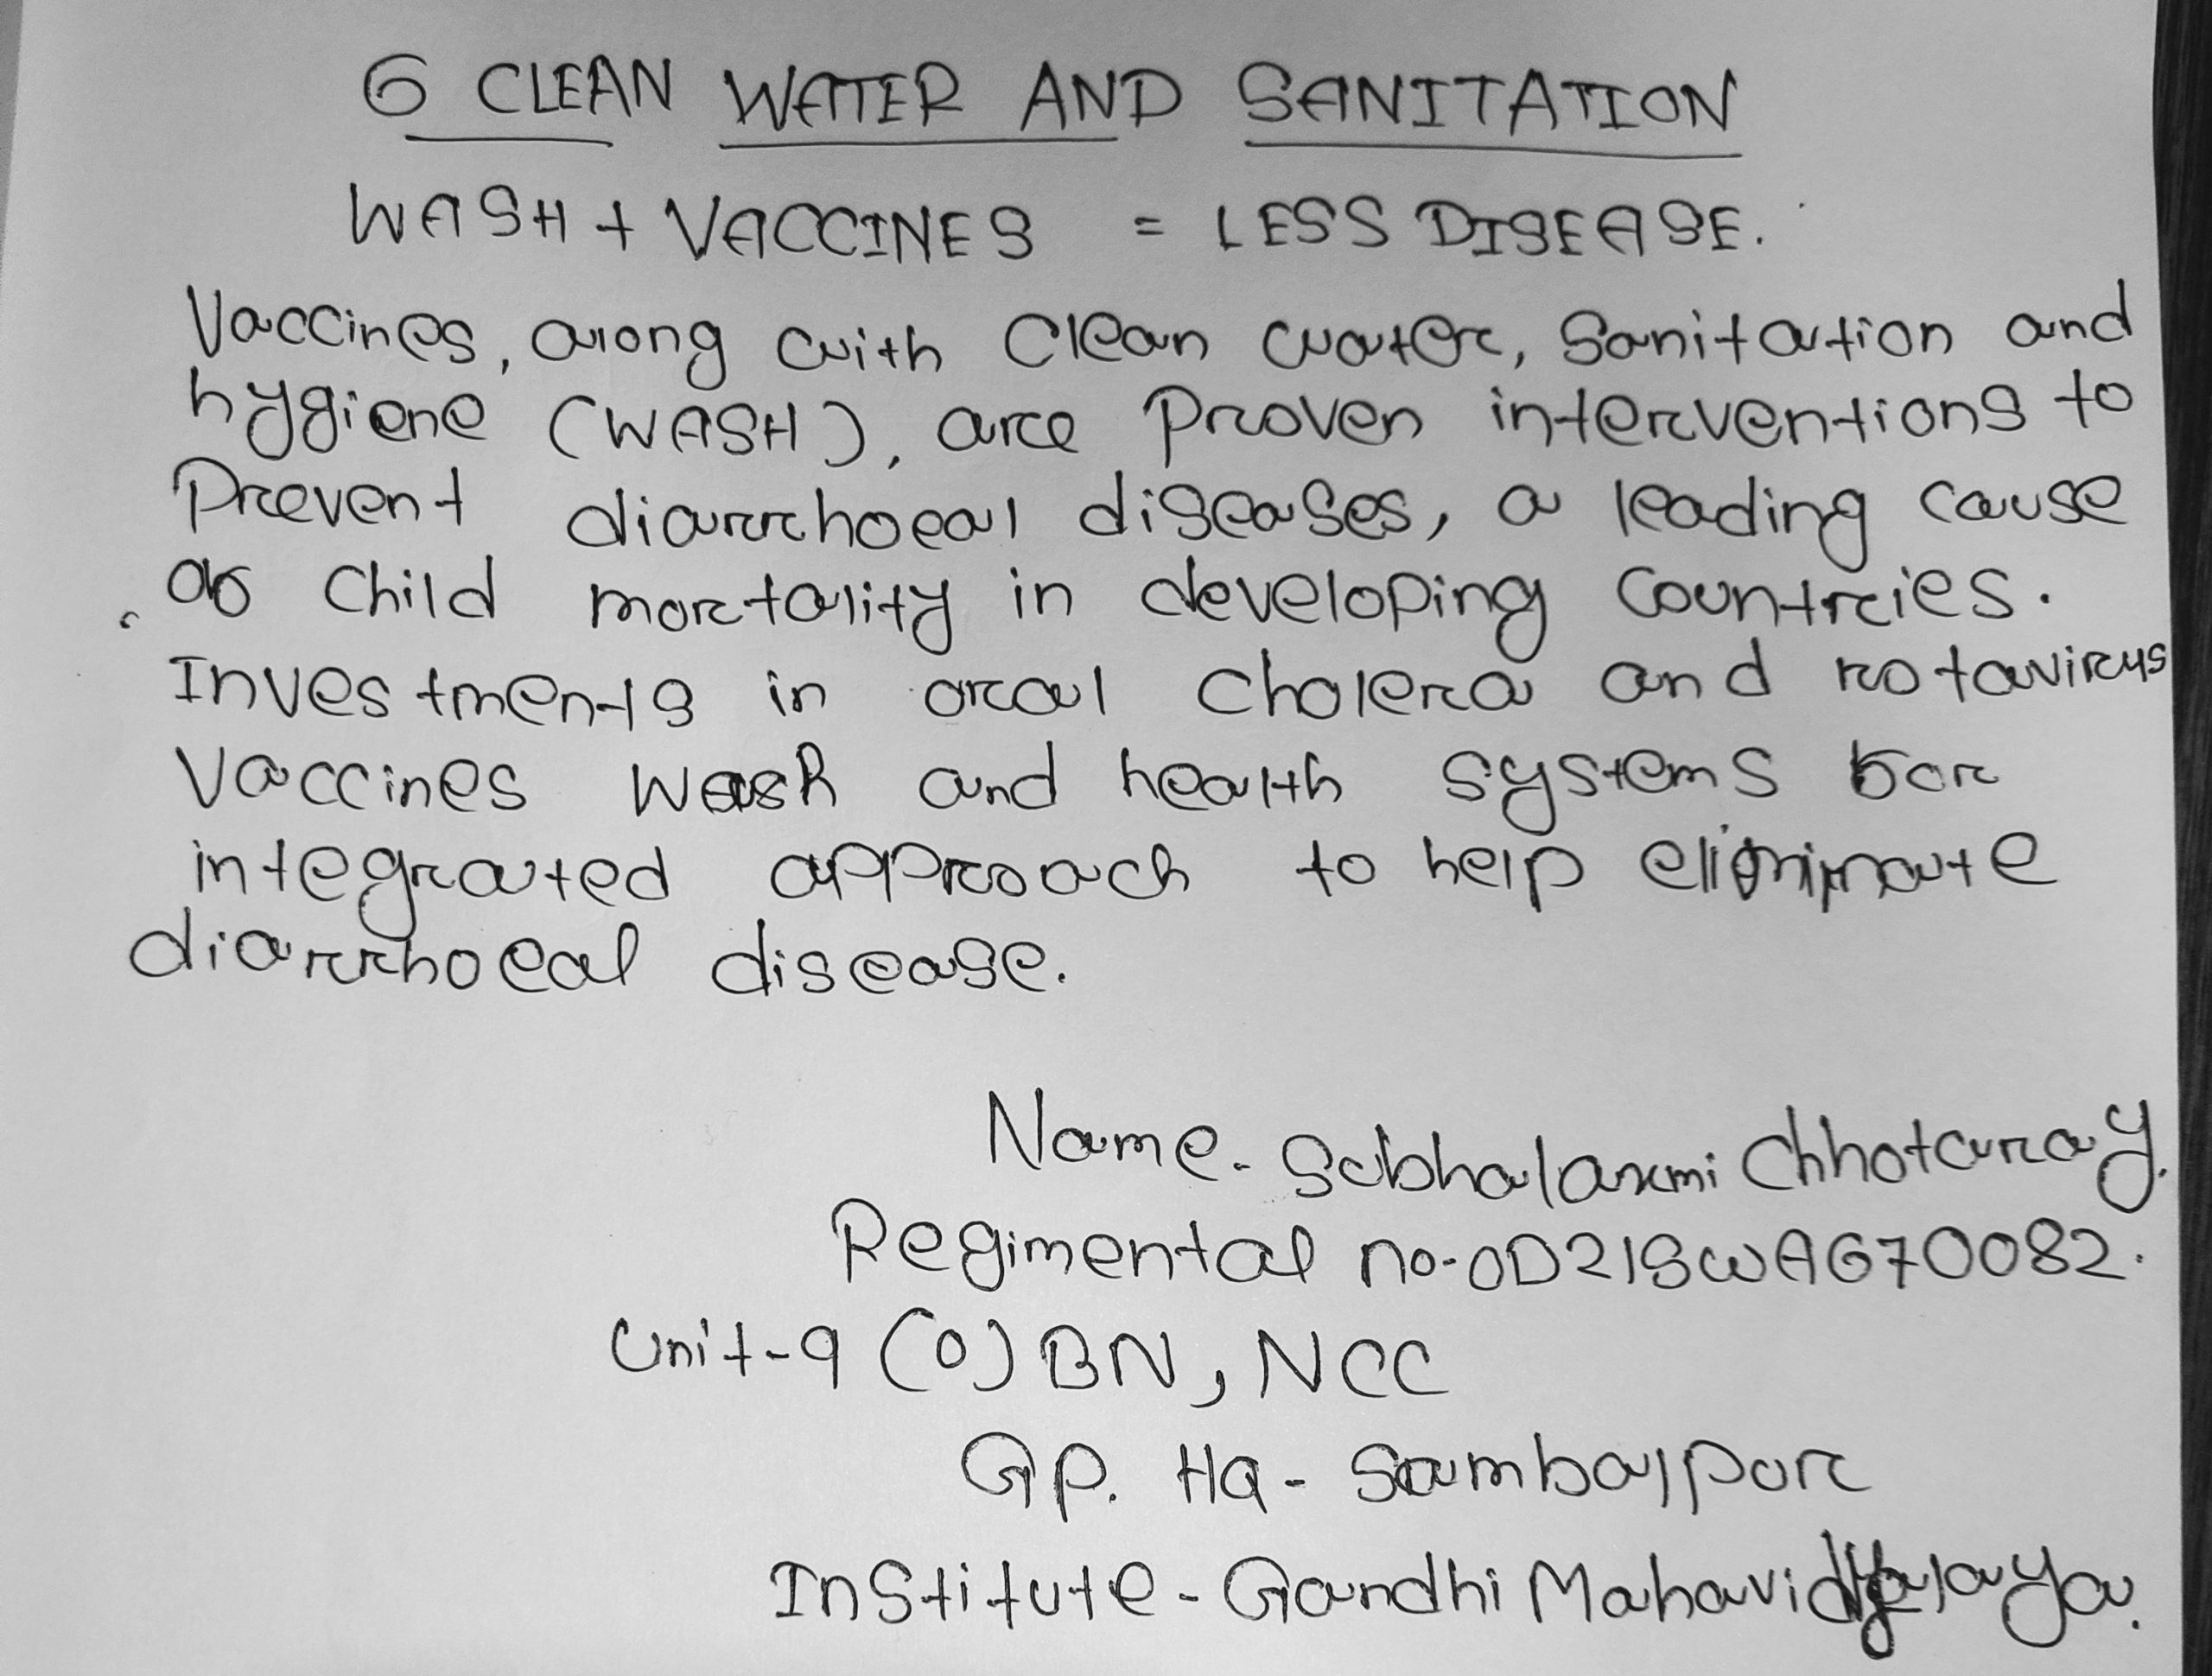 6 CLEAN WATER AND SANITATION
WASH + VACCINES = LESS DISEASE.
Vaccines, along with Clean water, Sanitation and
hygiene (WASH), are Proven interventions to
Prevent diarrhoeal diseases, a leading cause
of Child mortality in developing Countries.
Investments in oral Cholera and rotavirus
Vaccines Wash and health Systems for
integrated approach to help eliminate
diarrhoeal disease.
Name- Subhalaxmi Chhotaray.
Regimental no-OD21SWA670082.
Unit-9 (O) BN, NCC
GP. HQ- Sambalpur
Institute - Gandhi Mahavidyalaya.